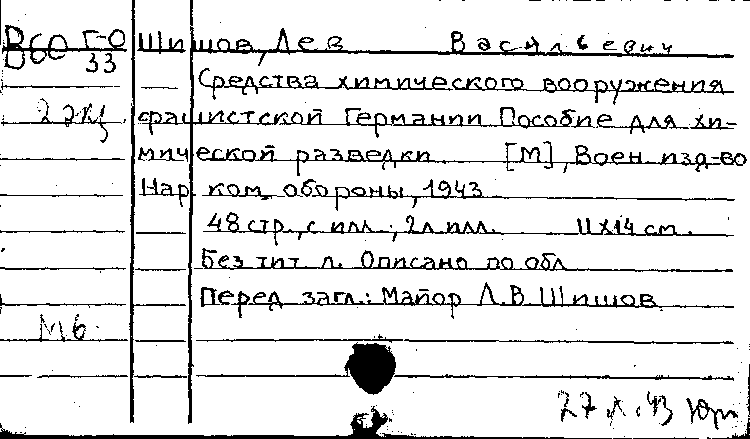 В60 Г-0 Шишов, Лев Васильевич
33
Средства химического вооружения
2 экз. фашистской Германии Пособие для хи-
мической разведки [М], Воен. изд-во
Нар. ком. обороны, 1943
48 стр., с илл.; 2л илл. 11х14 см.
Без тит л. Описано по обл
Перед загл.: Майор Л.В. Шишов
М6.